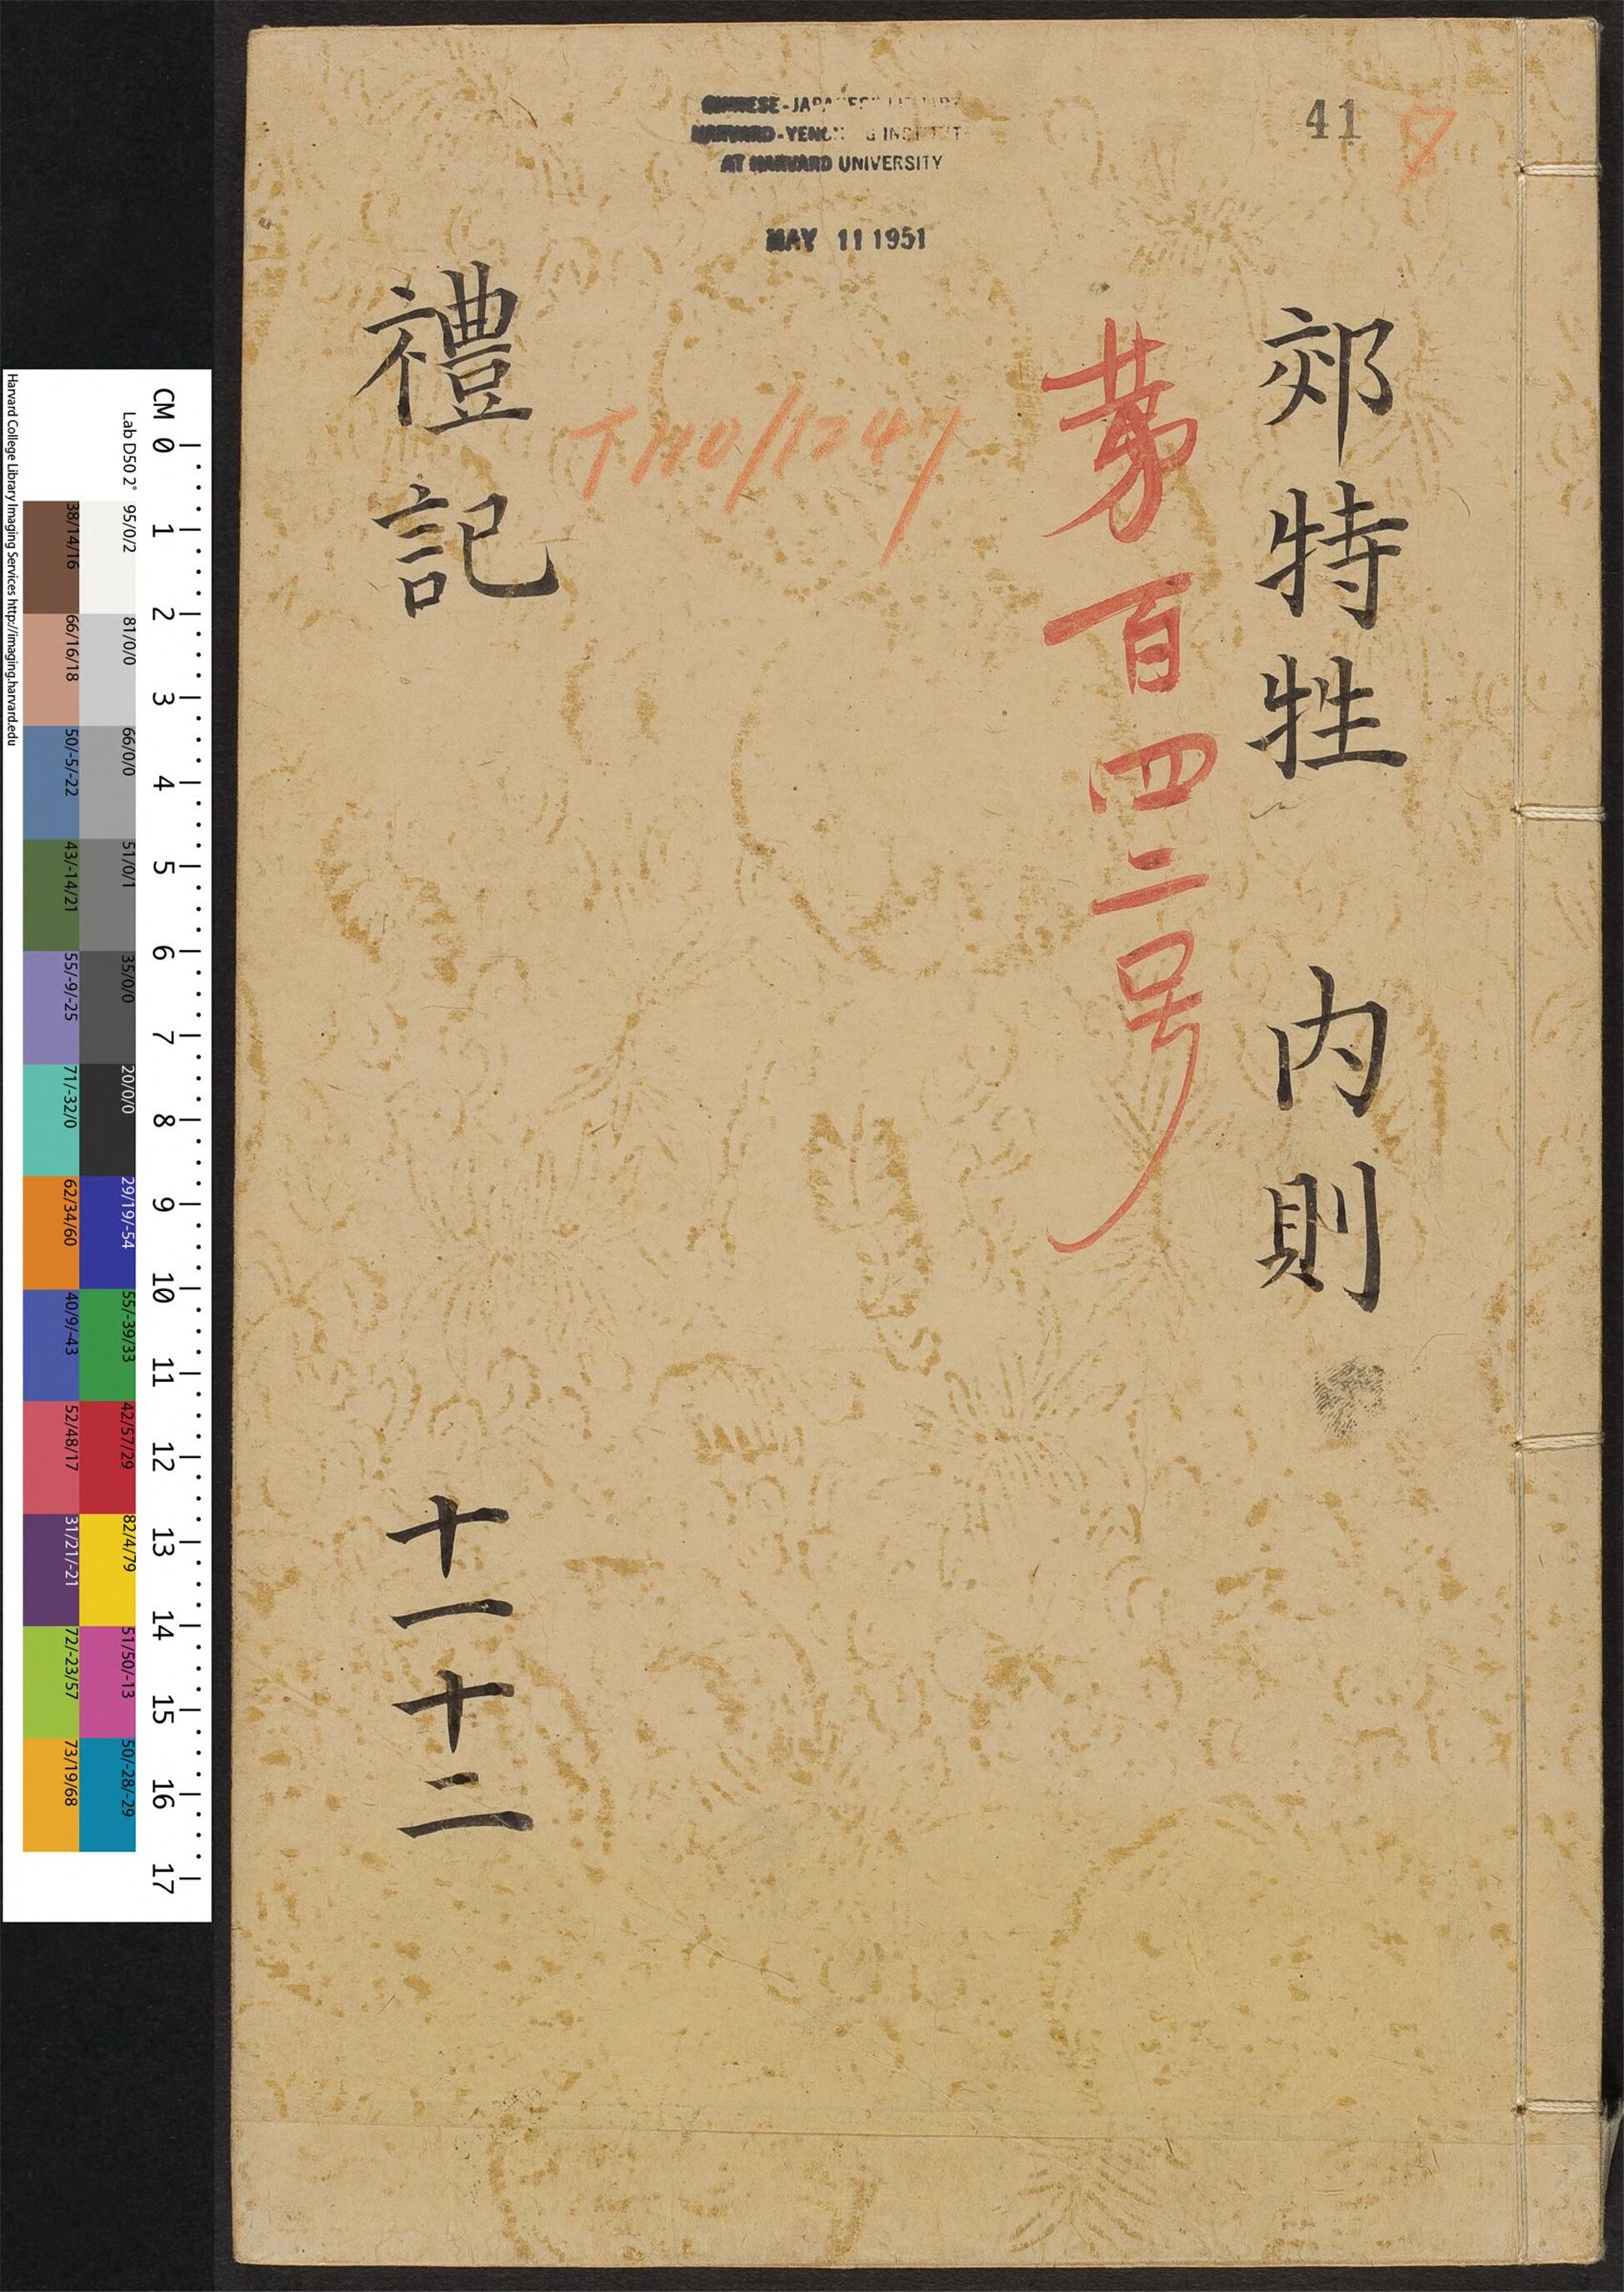 CHINESE-JAPANESE LIBRARY
HARVARD-YENCHING INSTITUTE
AT HARVARD UNIVERSITY
MAY 11 1951
41
8
郊特牲 内則
第百四二号
T110/1247
禮記 十一 十二
Harvard College Library Imaging Services http://imaging.harvard.edu
Lab D50 2°
CM 0 1 2 3 4 5 6 7 8 9 10 11 12 13 14 15 16 17
95/0/2 81/0/0 66/0/0 51/0/1 35/0/0 20/0/0 29/19/-54 55/-39/33 42/57/29 82/4/79 51/50/-13 50/-28/-29
38/14/16 66/16/18 50/-5/-22 43/-14/21 55/-9/-25 71/-32/0 62/34/60 40/9/-43 52/48/17 31/21/-21 72/-23/57 73/19/68